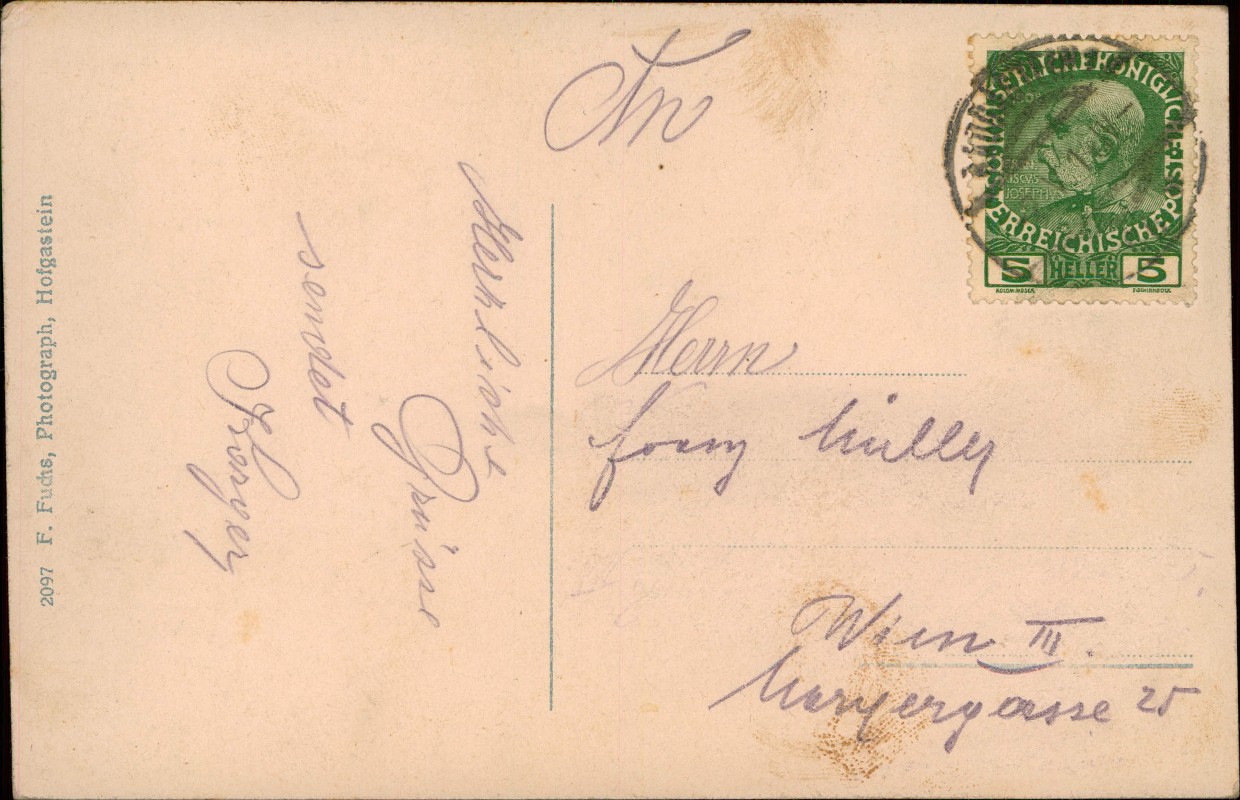 2097 F. Fuchs, Photograph, Hofgastein
Herzliche
Grüsse
sendet
An
Herrn
Franz Müller
Wien III.
Marxergasse 25
KAISERLICHE KÖNIGLICHE
ÖSTERREICHISCHE POST
FRAN
CISCVS
JOSEPHVS
5 HELLER 5
KOLOM·MOSER
F·SCHIRNBÖCK